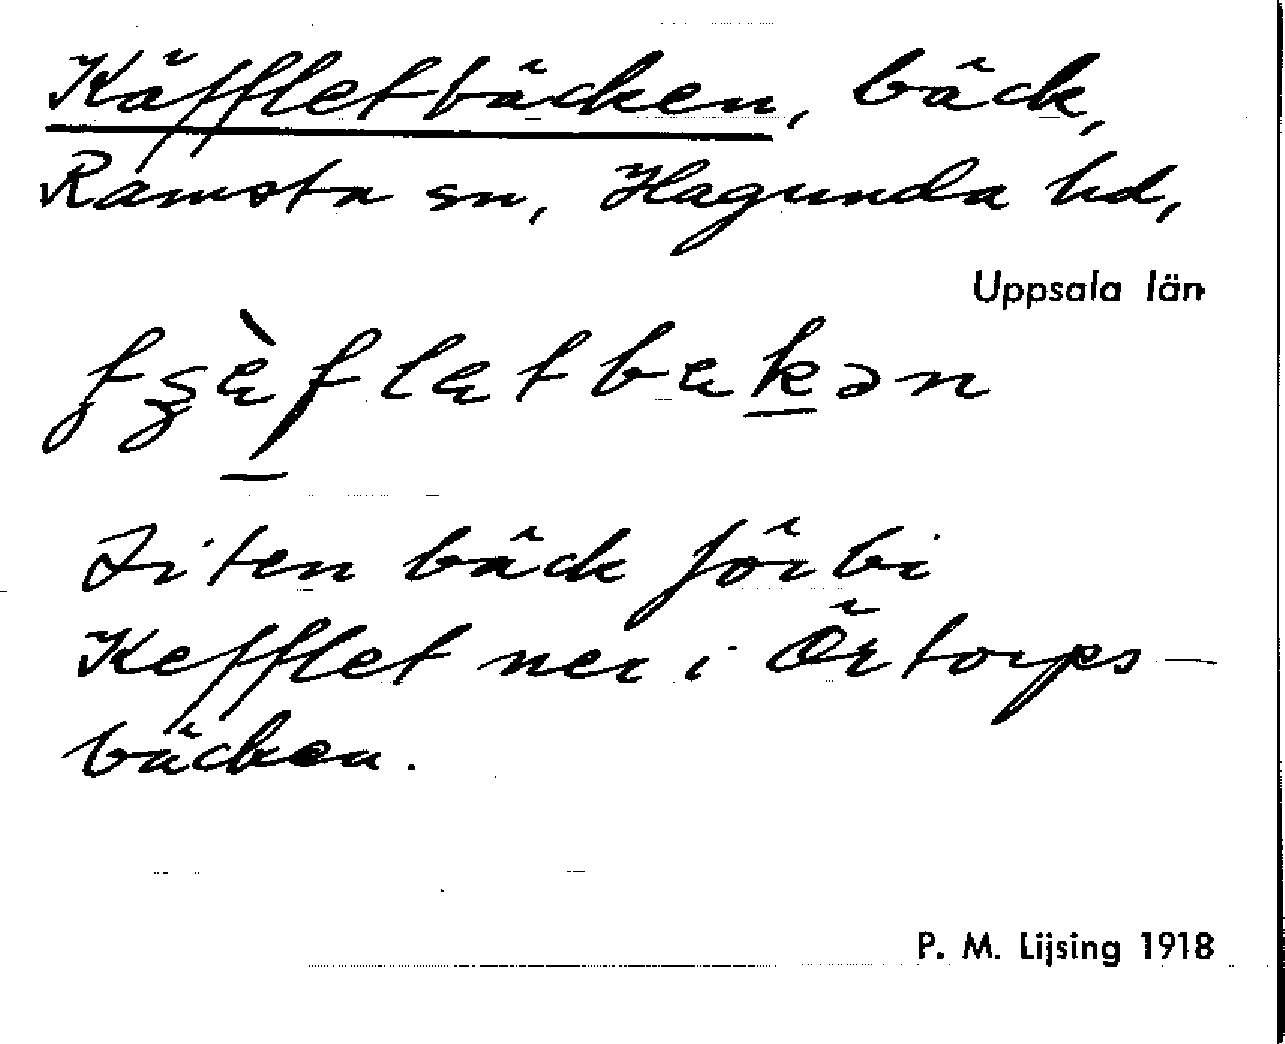 Käffletbäcken, bäck,
Ramsta sn, Hagunda hd,
Uppsala län
Liten bäck förbi
Kefflet ner i Örtorps-
bäcken.
P. M. Lijsing 1918